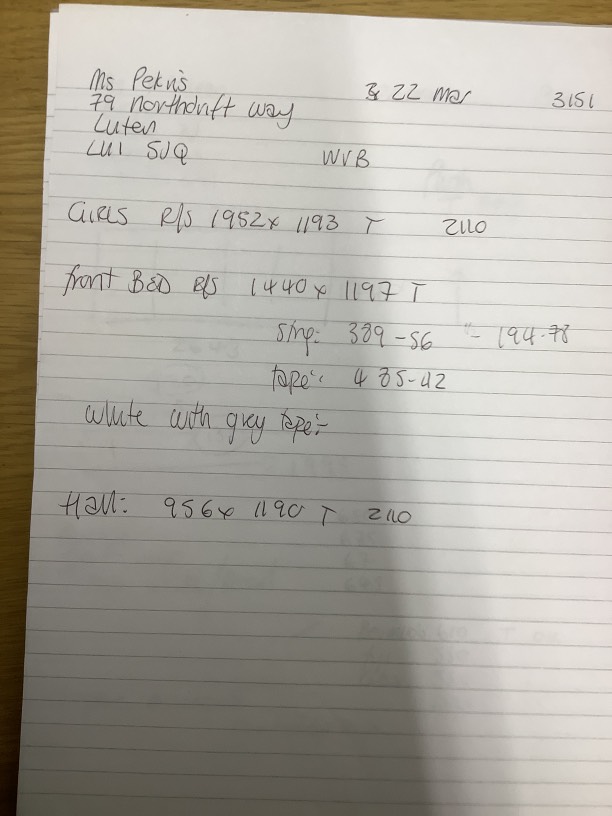 Ms Pekris 22 Mar 3151
79 northdrift way
Luten
LU1 SJQ WVB
GIRLS R/S 1952x 1193 T 2110
front BED R/S 1440x 1197 T
389-56 = 194-78
tape: 485-42
white with grey tape:-
Hall: 956x 1190 T 2110